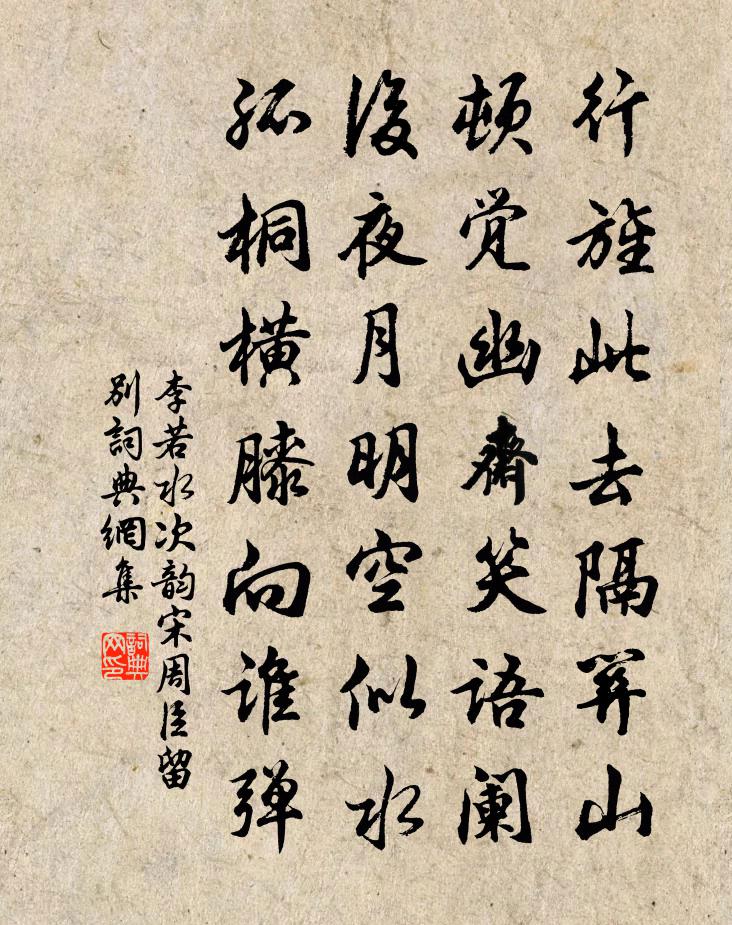 行旌此去隔关山
顿觉幽斋笑语阑
後夜月明空似水
孤桐横膝向谁弹
李若水次韵宋周臣留
别詞典網集
詞典
网印